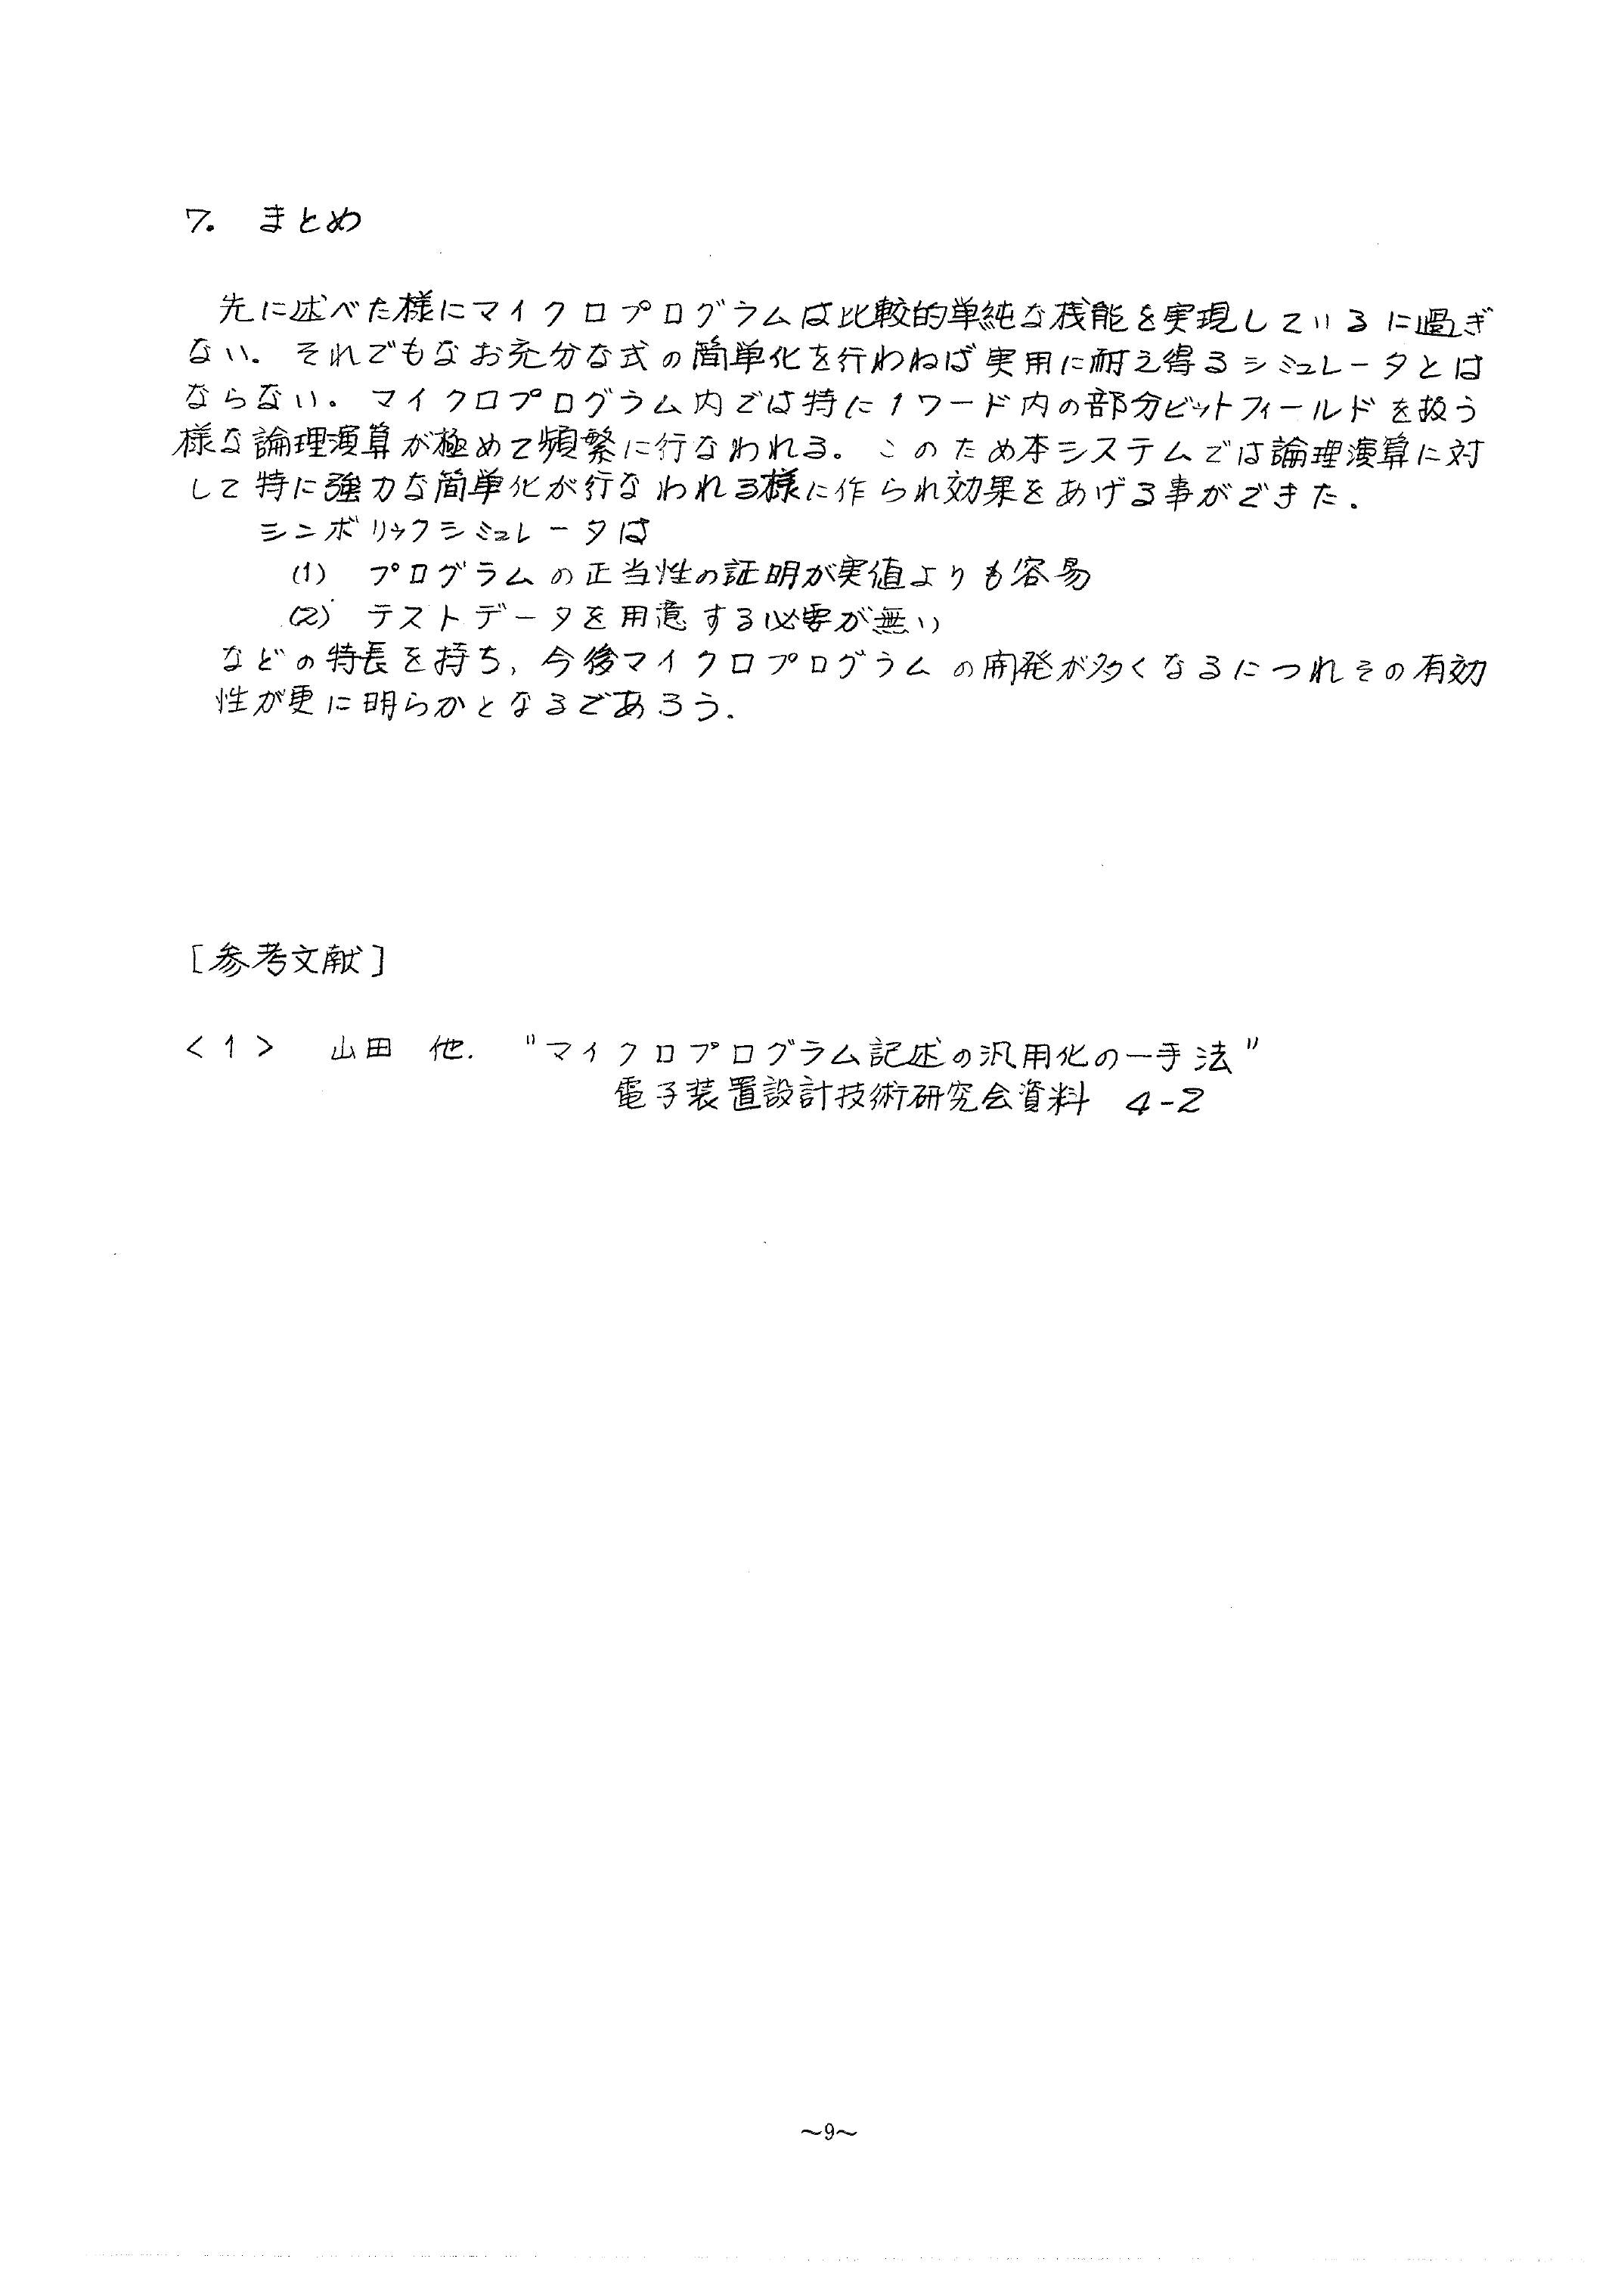 7. まとめ
先に述べた様にマイクロプログラムは比較的単純な機能を実現しているに過ぎ
ない. それでもなお充分な式の簡単化を行わねば実用に耐え得るシミュレータとは
ならない. マイクロプログラム内では特に1ワード内の部分ビットフィールドを扱う
様な論理演算が極めて頻繁に行なわれる. このため本システムでは論理演算に対
して特に強力な簡単化が行なわれる様に作られ効果をあげる事ができた.
シンボリックシミュレータは
(1) プログラムの正当性の証明が実値よりも容易
(2) テストデータを用意する必要が無い
などの特長を持ち, 今後マイクロプログラムの開発が多くなるにつれその有効
性が更に明らかとなるであろう.
[参考文献]
<1> 山田 他. "マイクロプログラム記述の汎用化の一手法"
電子装置設計技術研究会資料 4-2
~9~